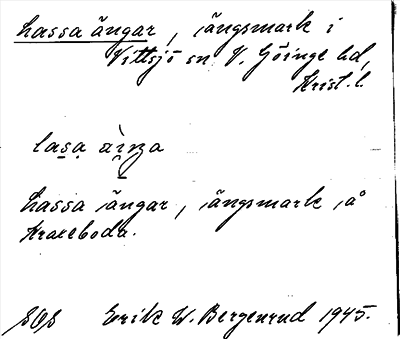 Lassa ängar, ängsmark i
Vittsjö sn V. Göinge hd,
Krist. l.
lasa äŋa
Lassa ängar, ängsmark å
Krareboda.
SOS Erik W. Bergenrud 1945.